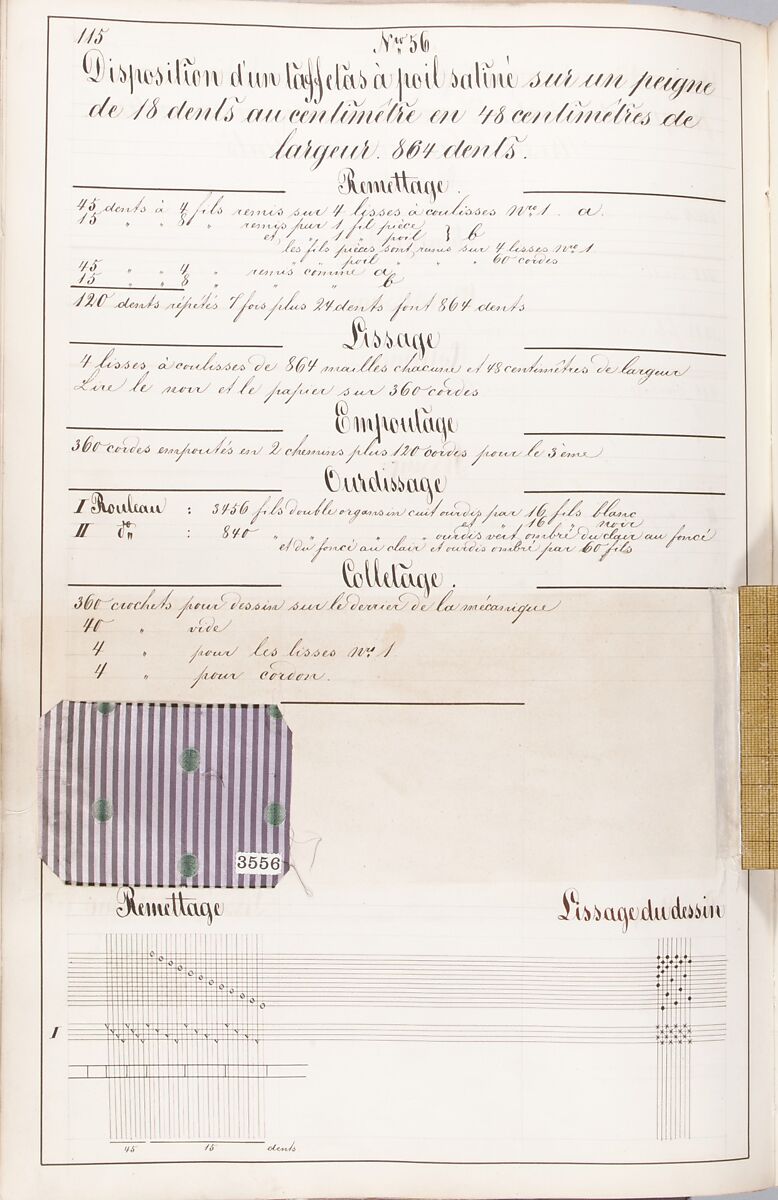 115
Nro 56
Disposition d'un taffetas à poil satiné sur un peigne
de 18 dents au centimètre en 48 centimètres de
largeur. 864 dents.
Remettage.
45 dents à 4 fils remis sur 4 lisses à coulisses Nro 1. a.
15 " " 8 " remis par 1 fil pièce } b
et 1 " poil
les fils pièces sont remis sur 4 lisses Nro 1.
" " poil " " " 60 cordes
45 " " 4 " remis comme a
15 " " 8 " " " b
120 dents répétés 7 fois plus 24 dents font 864 dents
Lissage
4 lisses à coulisses de 864 mailles chacune et 48 centimètres de largeur
Lire le noir et le papier sur 360 cordes
Empoutage
360 cordes empoutés en 2 chemins plus 120 cordes pour le 3ème
Ourdissage
I Rouleau : 3456 fils double organsin cuit ourdis par 16 fils blanc
et " 16 " noir
II do : 840 " " " " ourdis vert ombré du clair au foncé
et du foncé au clair et ourdis ombré par 60 fils
Colletage.
360 crochets pour dessin sur le derrier de la mécanique
40 " vide
4 " pour les lisses Nro 1
4 " pour cordon.
3556
Remettage
Lissage du dessin
I
45 15 dents